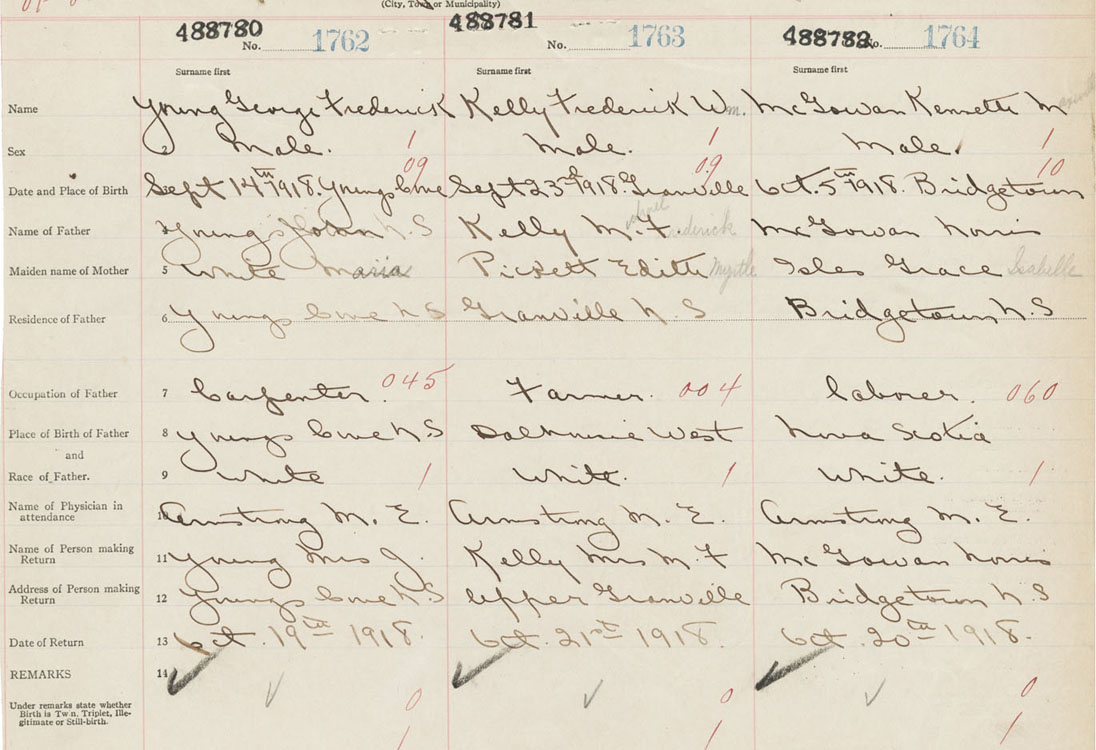 (City, Town or Municipality)
488780 488781 488782
No. 1762 No. 1763 No. 1764
Surname first Surname first Surname first
Name Young George Frederick Kelly Frederick Wm. McGowan Kenneth M
Sex 2 Male. 1 Male. 1 Male. 1
09 09 10
Date and Place of Birth Sept 14th 1918. Youngs Cove Sept 23rd 1918. Granville Oct. 5th 1918. Bridgetown
Name of Father Youngs John N.S Kelly M. F. McGowan Norris
Maiden name of Mother 5 White Maria Pickett Edith Myrtle Isles Grace Isabelle
Residence of Father 6 Youngs Cove N S Granville N. S Bridgetown N. S
Occupation of Father 7 Carpenter. 045 Farmer. 004 laborer. 060
Place of Birth of Father 8 Youngs Cove N.S Dalhousie West Nova Scotia
and
Race of Father. 9 White 1 White. 1 White. 1
Name of Physician in
attendance 10 Armstrong M. E. Armstrong M. E. Armstrong M. E.
Name of Person making
Return 11 Young Mrs J. Kelly Mrs M. F McGowan Norris
Address of Person making
Return 12 Youngs Cove N.S Upper Granville Bridgetown N. S
Date of Return 13 Oct. 19th 1918. Oct. 21st 1918. Oct. 20th 1918.
REMARKS 14
Under remarks state whether
Birth is Twin, Triplet, Ille-
gitimate or Still-birth.
0 0 0
1 1 1